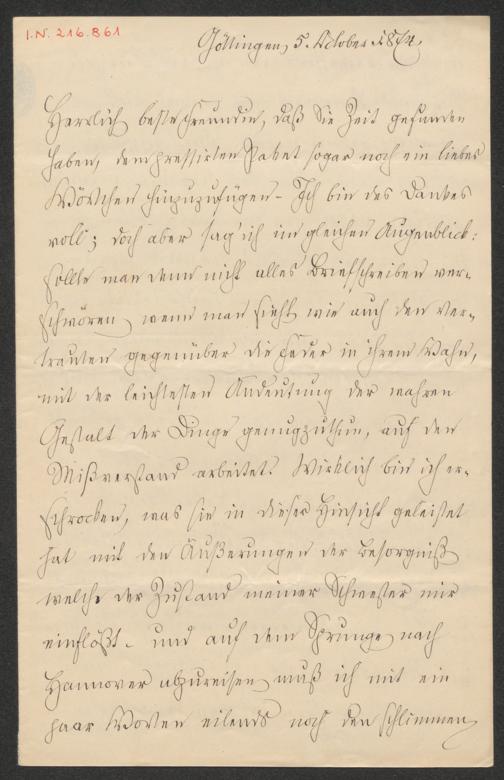 I.N. 216.861
Göttingen, 5. October 1874.
Herzlich beste Freundin, daß Sie Zeit gefunden
haben, dem pressirten Paket sogar noch ein liebes
Wörtchen hinzuzufügen – Ich bin des Dankes
voll; doch aber sag' ich im gleichen Augenblick:
sollte man denn nicht alles Briefschreiben ver-
schwören, wenn man sieht wie auch den Ver-
trauten gegenüber die Feder in ihrem Wahn,
mit der leichtesten Andeutung der wahren
Gestalt der Dinge genugzuthun, auf den
Mißverstand arbeitet. Wirklich bin ich er-
schrocken, was sie in dieser Hinsicht geleistet
hat mit den Äußerungen der Besorgniß
welche der Zustand meiner Schwester mir
einflößt. und auf dem Sprunge nach
Hannover abzureisen muß ich mit ein
paar Worten eilends noch den schlimmen